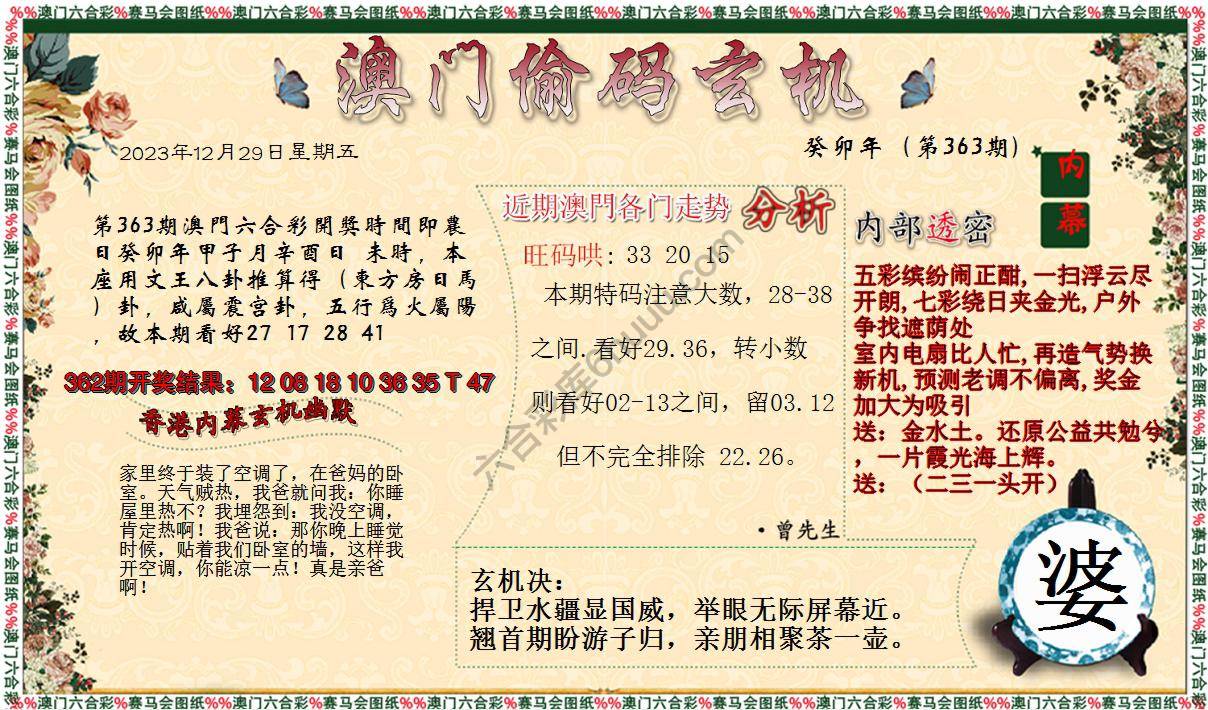 %%澳门六合彩%赛马会图纸%%澳门六合彩%赛马会图纸%%澳门六合彩%赛马会图纸%%澳门六合彩%赛马会图纸%%澳门六合彩%赛马会图纸%%澳门六合彩%赛马会图纸
澳门偷码玄机
2023年12月29日星期五
癸卯年（第363期）
内幕
第363期澳門六合彩開獎時間即農
日癸卯年甲子月辛酉日 未時，本
座用文王八卦推算得（東方房日馬
）卦，咸屬震宫卦，五行爲火屬陽
，故本期看好27 17 28 41
362期开奖结果：12 08 18 10 36 35 T 47
香港内幕玄机幽默
家里终于装了空调了，在爸妈的卧
室。天气贼热，我爸就问我：你睡
屋里热不？我埋怨到：我没空调，
肯定热啊！我爸说：那你晚上睡觉
时候，贴着我们卧室的墙，这样我
开空调，你能凉一点！真是亲爸
啊！
近期澳門各门走势 分析
旺码哄: 33 20 15
本期特码注意大数，28-38
之间.看好29.36，转小数
则看好02-13之间，留03.12
但不完全排除 22.26。
·曾先生
内部透密
五彩缤纷闹正酣,一扫浮云尽
开朗,七彩绕日夹金光,户外
争找遮荫处
室内电扇比人忙,再造气势换
新机,预测老调不偏离,奖金
加大为吸引
送：金水土。还原公益共勉兮
，一片霞光海上辉。
送：（二三一头开）
玄机决：
捍卫水疆显国威，举眼无际屏幕近。
翘首期盼游子归，亲朋相聚茶一壶。
婆
%%澳门六合彩%赛马会图纸%%澳门六合彩%赛马会图纸%%澳门六合彩%赛马会图纸%%澳门六合彩%赛马会图纸%%澳门六合彩%赛马会图纸%%澳门六合彩%赛马会图纸